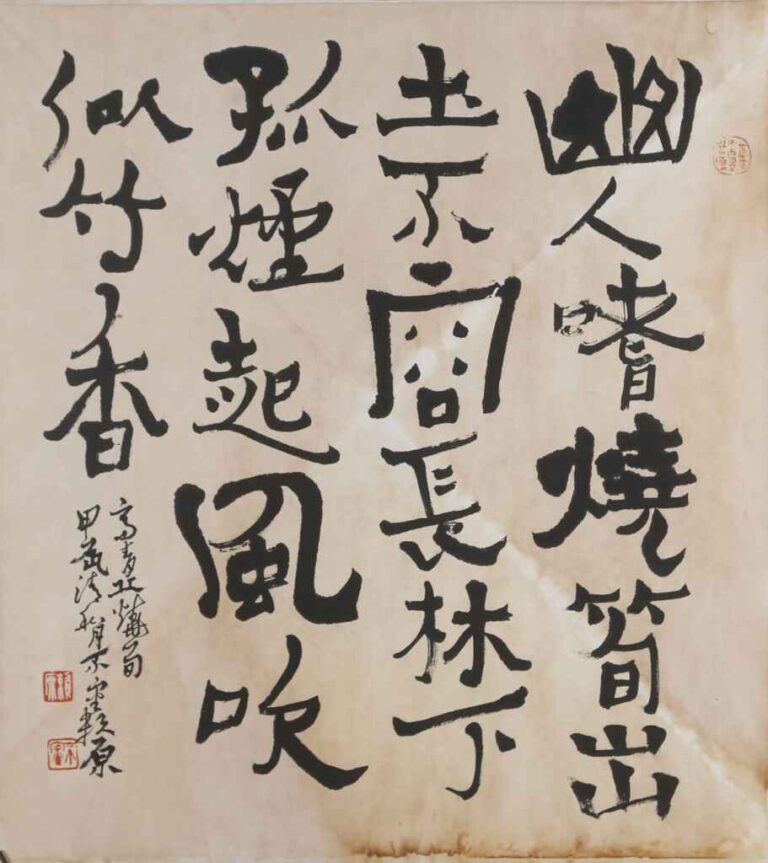 幽人嗜燒筍出
土不容長林下
孤煙起風吹
似竹香
高青丘燒筍
甲戌清和月不